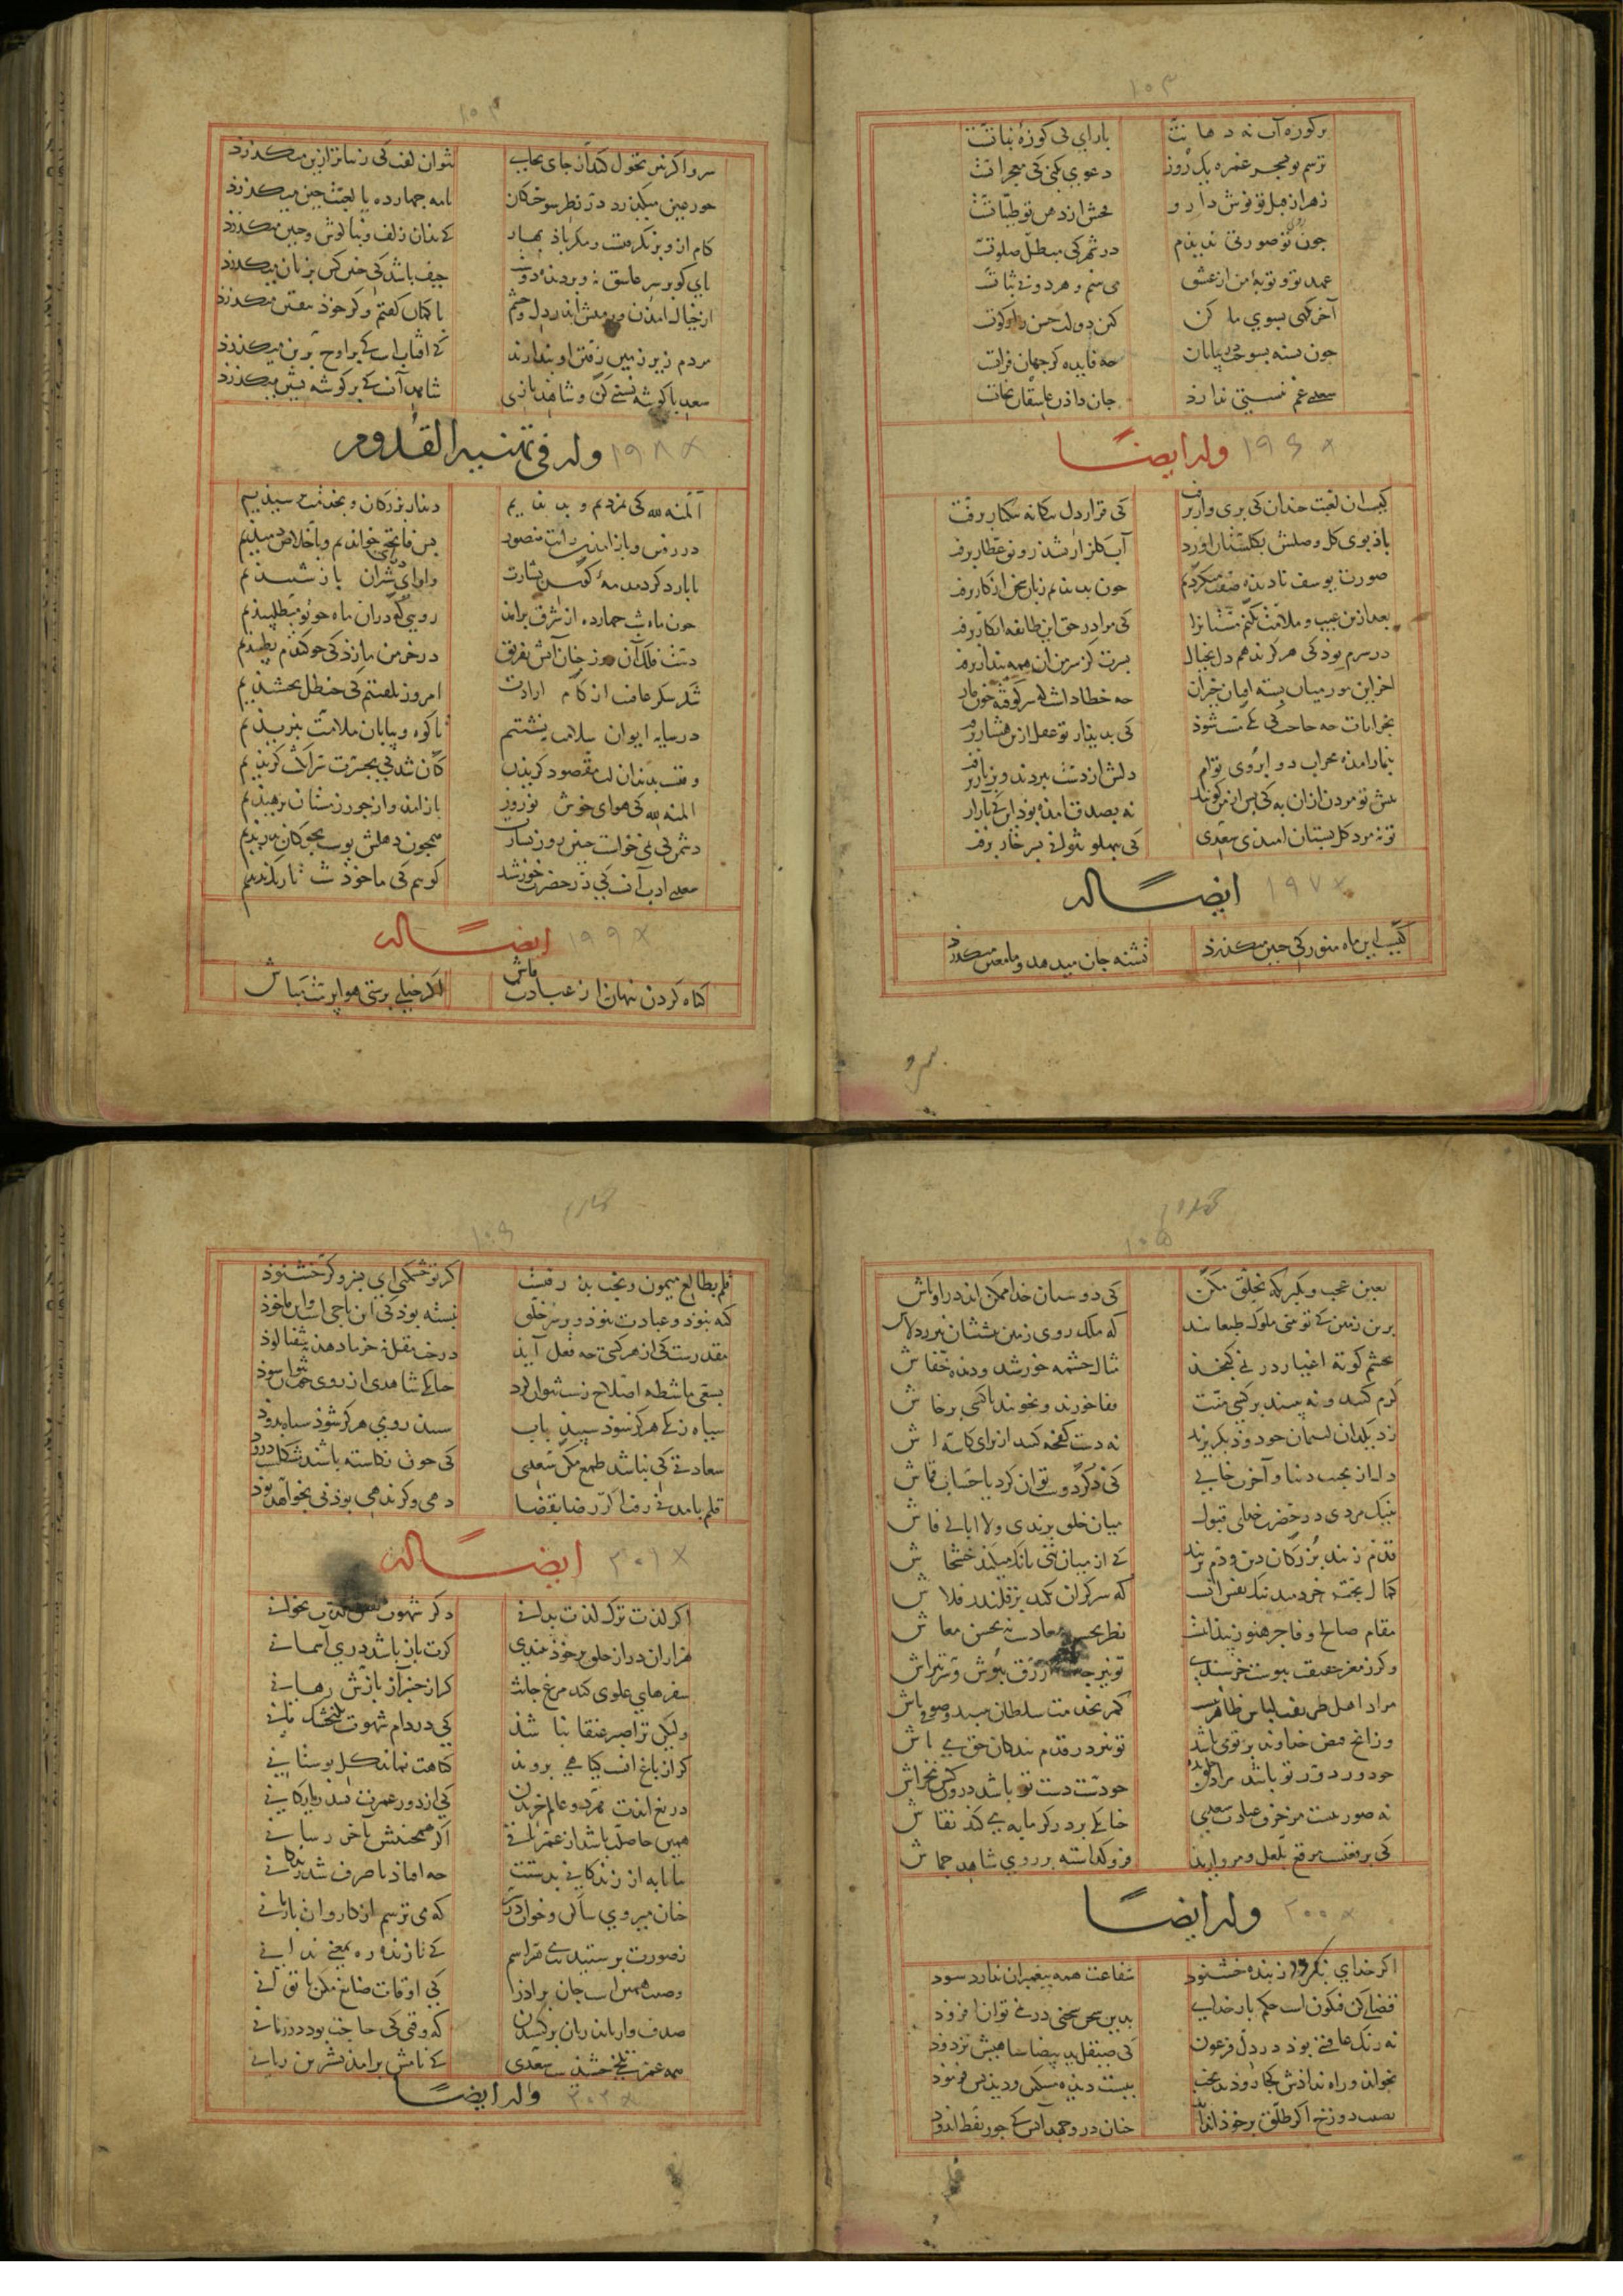 ۱۰۳
بر کوزه آب نه دهانت بازای کی کوزه نباتت
ترسم تو بسحر غمزه یک روز دعوی بکنی که معجزاتت
زهر از قبل تو نوش دارو فحش از دهن تو طیباتت
چون تو صورتی ندیدم در شهر که مبطل صلوتت
عهد تو و توبه من از عشق می بینم و هر دو بی ثباتت
آخر نگهی بسوی ما کن کین دولت حسن را زکوتت
چون تشنه بسوخت در بیابان چه فایده گر جهان فراتت
سعدی غم نیستی ندارد جان دادن عاشقان نجاتت
وله ایضاً ۱۹۶
کیست آن لعبت خندان کی پری وار برفت کی قرار دل بیکبار برفت
باد بوی گل وصلش بگلستان آورد آب گلزار بشد رونق عطار برفت
صورت یوسف نادیده صفت میکردیم چون بدیدیم زبان سخن از کار برفت
بعد ازین عیب و ملامت نکنم مستانرا کی مرا در حق این طایفه انکار برفت
در سرم بود کی هرگز ندهم دل بخیال بسرت کز سر من آن همه پندار برفت
بخرابات چه حاجت کی یکی مست شود کی بدیدار تو عقل از سر هشیار برفت
بنماز آمده محراب دو ابروی تو دلش از دست ببردند و بزنار برفت
پیش تو مردن از آن به کی پس از من گویند نه بصدق آمده بود این که بآزار برفت
تو نه مرد گل بستان امیدی سعدی کی بپهلو نتوانی بسر خار برفت
ایضاً له ۱۹۷
کیست این ماه منور کی چنین میگذرد تشنه جان میدهد و ماء معین میگذرد
سرو
۱۰۴
سرو اگر نیز تحول کند از جای بجای نتوان گفت کی زیباتر ازین میگذرد
حور عین میگذرد در نظر سوختگان یا مه چهارده یا لعبت چین میگذرد
کام ازو برنگرفتست مگر باد بهار که بدان زلف و بناگوش و جبین میگذرد
پای گو بر سر عاشق نه و بر دیده دوست حیف باشد کی چنین کس بزمین میگذرد
از خیال آمدن و رفتنش اندر دل و چشم با گمان گفتم و گر خود بیقین میگذرد
مردم زیر زمین رفتن او پندارند که آفتاب است که بر اوج برین میگذرد
سعدیا گوشه نشینی کن و شاهد بازی شاهد آنست که بر گوشه نشین میگذرد
وله فی تهنیة القدوم ۱۹۸
المنة لله کی نمردیم و بدیدیم دیدار بزرگان و بخدمت برسیدیم
در رفتن و باز آمدن رایت منصور بس فاتحه خواندیم و باخلاص دمیدیم
تا بار دگر دبدبه کوس بشارت و آوای درای شتران باز شنیدیم
چون ماه شب چهارده از شرق برآمد رویی که در آن ماه چو نو میطلبیدیم
شکر شکر عافیت از کام ارادت امروز بگفتیم کی حنظل بچشیدیم
در سایه ایوان سلامت بنشستیم تا کوه و بیابان ملامت ببریدیم
وقتست بدندان لب مقصود گزیدن کان شد کی بحسرت سر انگشت گزیدیم
المنة لله کی هوای خوش نوروز باز آمد و از جور زمستان برهیدیم
دشمن کی نمی خواست چنین روز بشارت همچون دهلش پوست بچوگان بدریدیم
سعدی ادب آنست کی در حضرت خورشید گوییم کی ما خود شب تاریک ندیدیم
ایضاً له ۱۹۹
گناه کردن پنهان از عبادت فاش اگر خدای پرستی هواپرست مباش
۱۰۵
بعین عجب و تکبر نگه بخلق مکن کی دوستان خدا ممکن اند در اوباش
برین زمین که تو بینی ملوک طبعانند که ملک روی زمین پیششان نیرزد لاش
بچشم کوته اغیار در نمی گنجند مثال چشمه خورشید و دیده خفاش
کرم کنند و نه بینند بر کسی منت قفا خورند و نجویند با کسی پرخاش
دل از محبت دنیا و آخرت خالی کی ذکر دوست توان کرد یا حساب قماش
بنیک مردی در حضرت خدای قبول میان خلق برندی و لاابالی فاش
قدم زنند بزرگان دین و دم نزنند که از میان تهی بانگ میکند خشخاش
کمال نفس خردمند نیکبخت آنست که سر گران نکند بر قلندر قلاش
مقام صالح و فاجر هنوز پیدا نیست نظر بحسن معادست نه بحسن معاش
مراد اهل طریقت لباس ظاهر نیست کمر بخدمت سلطان ببند و صوفی باش
وز آنچ فیض خداوند بر تو می پاشد تو نیز در قدم بندگان حق می پاش
چو دور دور تو باشد مراد خلق بده چو دست دست تو باشد درون کس مخراش
نه صورتیست مزخرف عبادت سعدی چنانکه بر در گرمابه می کند نقاش
کی برقعیست مرصع بلعل و مروارید فرو گذاشته بر روی شاهد جماش
وله ایضاً ۲۰۰
اگر خدای نباشد ز بنده خشنود شفاعت همه پیغمبران ندارد سود
قضای کن فیکون است حکم بار خدای بدین سخن سخنی در نمی توان افزود
نه زنگ عاقبتی بود در دل فرعون کی صیقل ید بیضا سیاهیش نزدود
بخواند و راه ندادش کجا رود بدبخت ببست دیده مسکین و دیدنش فرمود
نصیب دوزخ اگر طلق بر خود انداید چنان درو جهد آتش که چوب نفط اندود
۱۰۶
قلم بطالع میمون و بخت بد رفتست اگر تو خشمگنی ای پسر و گر خشنود
گنه نبود و عبادت نبود و بر سر خلق نبشته بود کی این ناجی است وان مأخوذ
مقدرست کی از هر کسی چه فعل آید درخت مقل نه خرما دهد نه شفتالود
بسعی ماشطه اصلاح زشت نتوان کرد چنانکه شاهدی از روی خوب نتوان سود
سیاه زنگی هرگز شود سپید بآب سپید رومی هرگز شود سیاه بدود
سعادتی کی نباشد طمع مکن سعدی کی چون نکاشته باشند مشکلست درود
قلم بآمدنی رفت اگر رضا بقضا دهی و گر ندهی بودنی بخواهد بود
ایضاً له ۲۰۱
اگر لذت ترک لذت بدانی دگر شهوت نفس لذت نخوانی
هزاران در از خلق بر خود ببندی گرت باز باشد دری آسمانی
سفرهای علوی کند مرغ جانت گر از چنبر آز بازش رهانی
ولیکن ترا صبر عنقا نباشد کی در دام شهوت بگنجشک مانی
گر از باغ انست گیاهی بروید گیاهت نماید گل بوستانی
دریغ آیدت هر دو عالم خریدن کی از دور عمرت بشد رایگانی
همین حاصلت باشد از عمر باقی اگر همچنینش بآخر رسانی
بیا تا به از زندگانی بدستت چه افتاد تا صرف شد زندگانی
چنان میروی ساکن و خواب در سر که می ترسم از کاروان باز مانی
وصیت همین است جان برادر کی اوقات ضایع مکن تا توانی
صدف وار باید زبان درکشیدن که وقتی کی حاجت بود در چکانی
همه عمر تلخی کشیدست سعدی که نامش برآمد بشیرین زبانی
وله ایضاً ۲۰۲